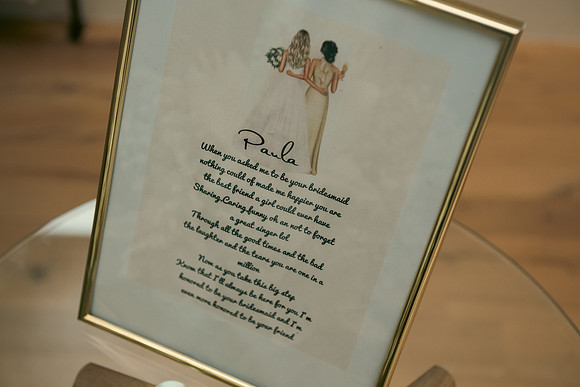 Paula
When you asked me to be your bridesmaid
nothing could of made me happier you are
the best friend a girl could ever have
Sharing,Caring,funny oh an not to forget
a great singer lol
Through all the good times and the bad
the laughter and the tears you are one in a
million
Now as you take this big step
Know that I'll always be here for you I'm
honored to be your bridesmaid and I'm
even more honored to be your friend